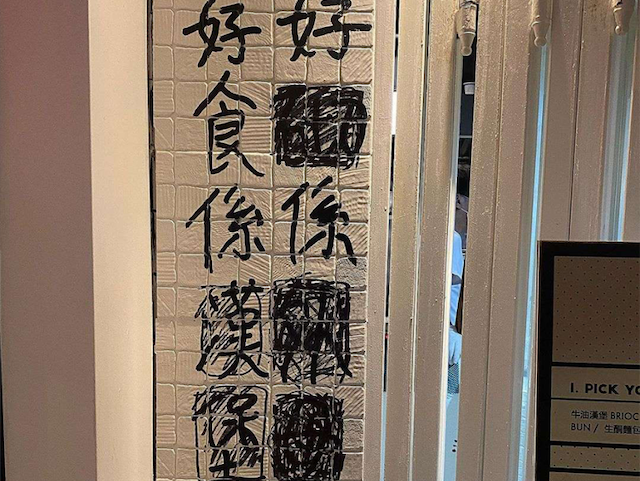 好係
好食係漢堡
1. PICK YO
牛油漢堡 BRIOC
BUN / 生酮麵包